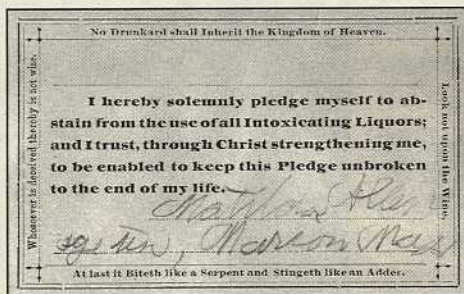 No Drunkard shall Inherit the Kingdom of Heaven.
Whosoever is deceived thereby is not wise.
I hereby solemnly pledge myself to ab-
stain from the use of all Intoxicating Liquors;
and I trust, through Christ strengthening me,
to be enabled to keep this Pledge unbroken
to the end of my life.
Look not upon the Wine.
age ten, Marion Mass
At last it Biteth like a Serpent and Stingeth like an Adder.